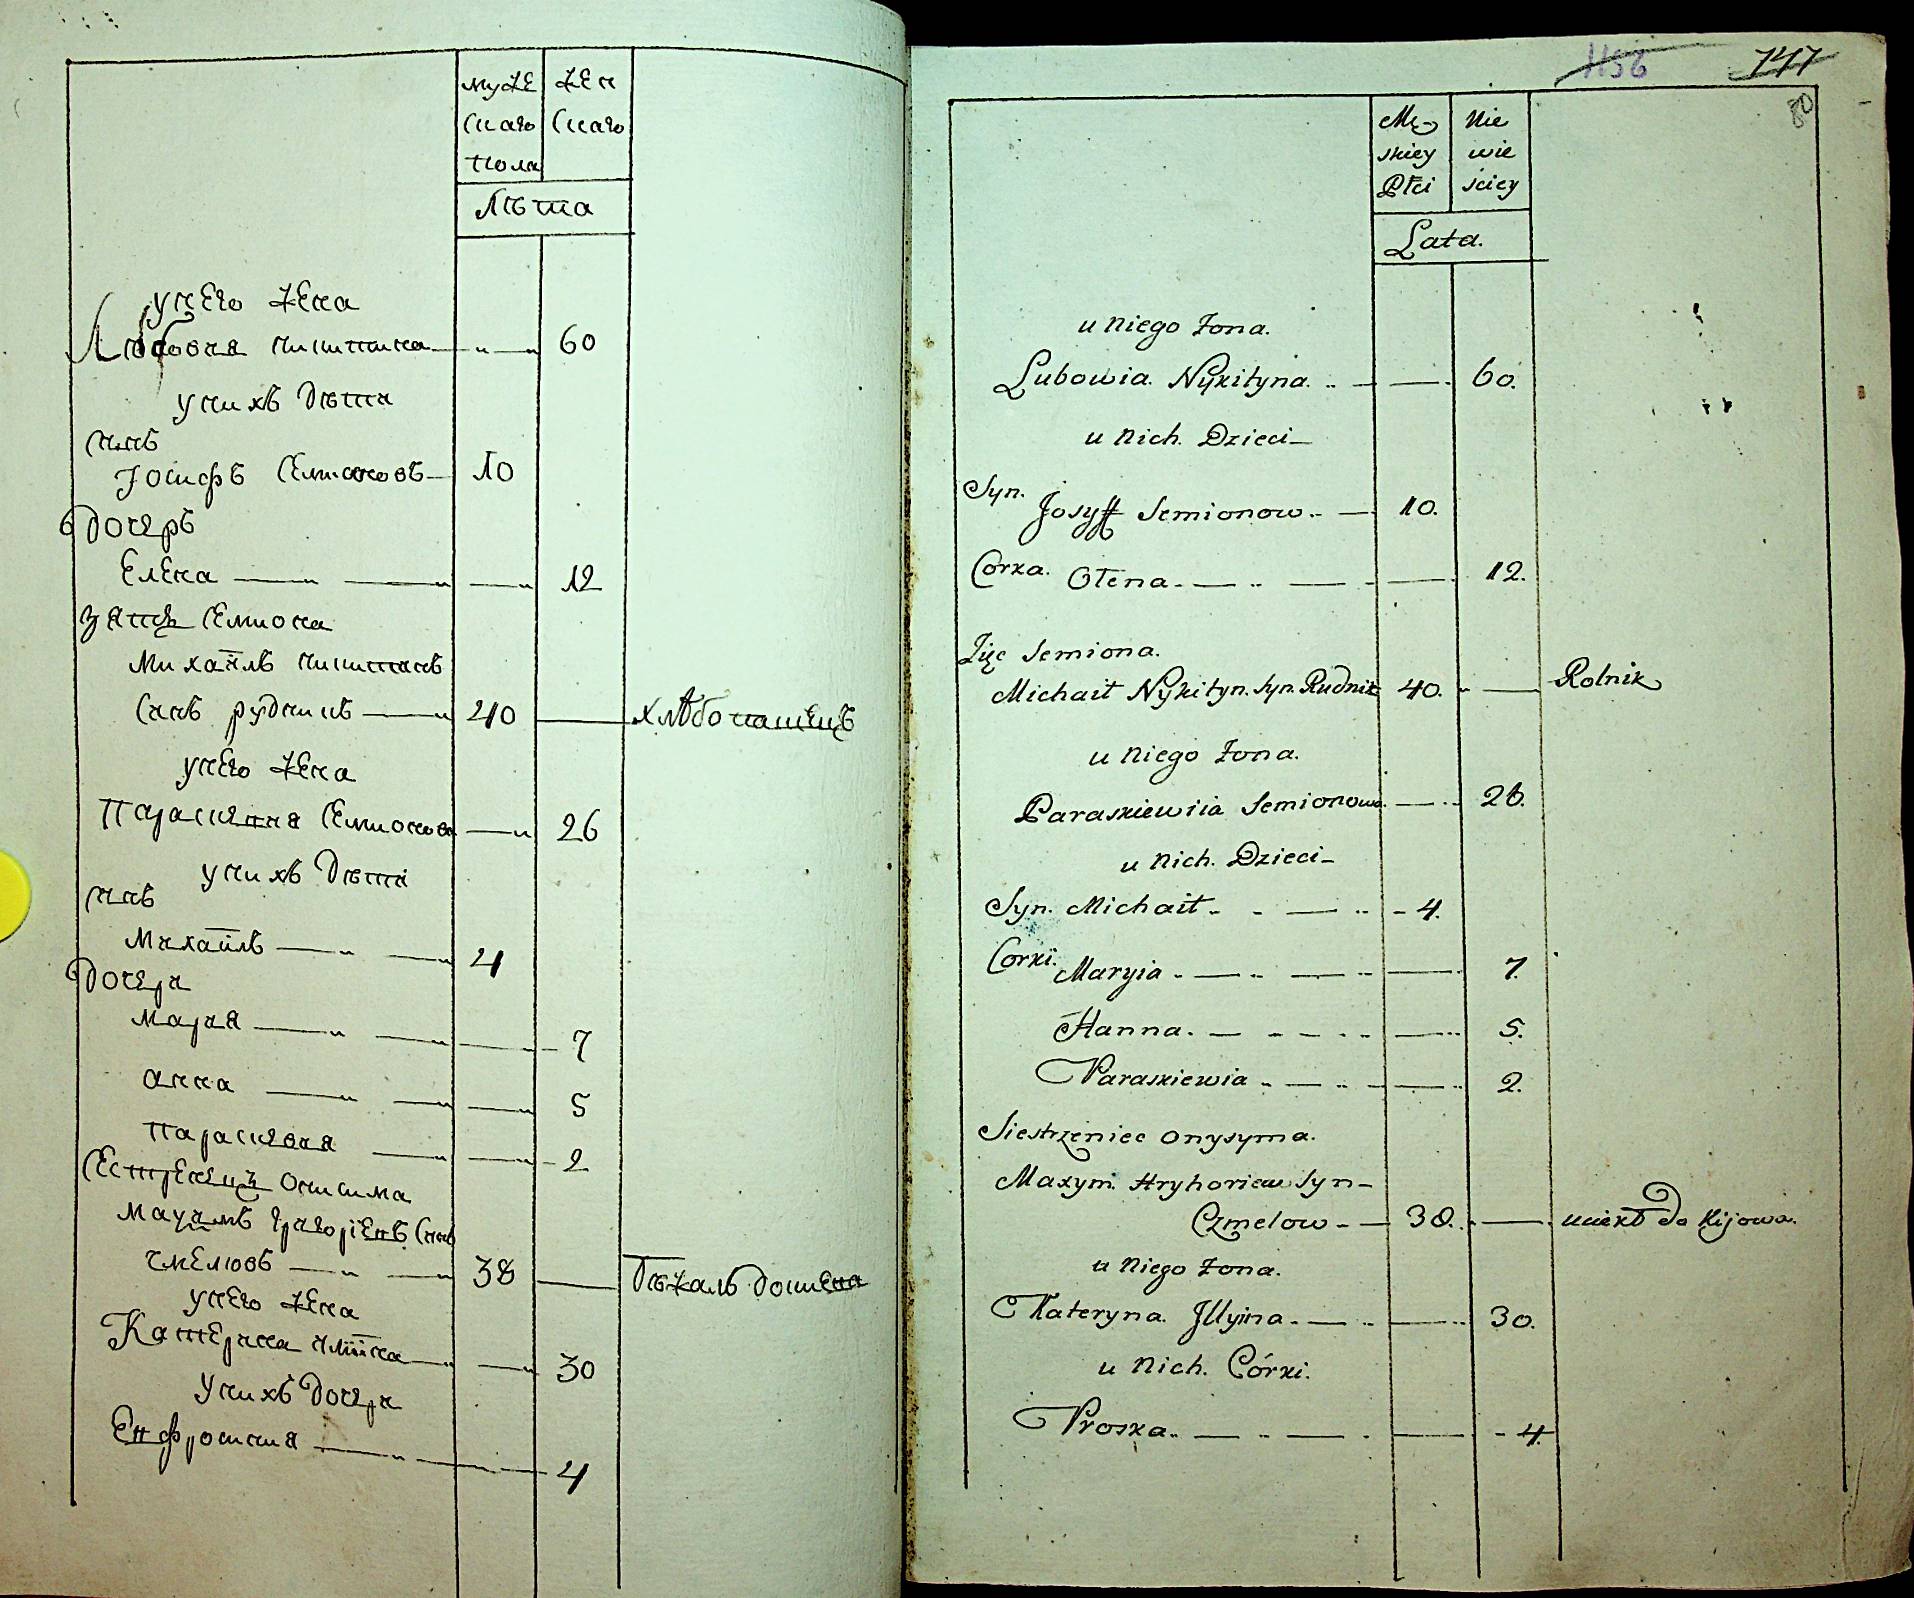 муже жен
скаго скаго
пола
Лѣта
у него жена
Любовия никитина 60
у нихъ дѣти
сынъ
Іосифъ Семионовъ 10
дочеръ
Елена 12
зять Семиона
михайлъ никитинъ
сынъ рудникъ 40 хлѣбопашецъ
у него жена
параскевия Семионова 26
у нихъ дѣти
сынъ
михайлъ 4
дочери
мария 7
анна 5
параскевия 2
Сестренецъ онисима
махимъ григоріевъ сынъ
чмеліовъ 38 бѣжалъ до киева
у него жена
Катерина иліина 30
у нихъ дочери
Евфросиния 4
1156 747
80
Mę- Nie
skiey wie
Płci ściey
Lata.
u niego Żona.
Lubowia. Nykityna. 60.
u nich. Dzieci
Syn.
Josyff Semionow. 10.
Corka. Ołena. 12.
Zięc Semiona.
Michaił Nykityn. syn. Rudnik 40. Rolnik
u niego Żona.
Paraskiewiia Semionowa. 26.
u nich. Dzieci
Syn. Michaił. 4.
Corki. Maryia. 7.
Hanna. 5.
Paraskiewia. 2.
Siestrzeniec Onysyma.
Maxym. Hryhoriew syn
Czmelow 38. uciekł do Kijowa.
u niego Żona.
Kateryna. Jllyina. 30.
u nich. Córki.
Proska. 4.